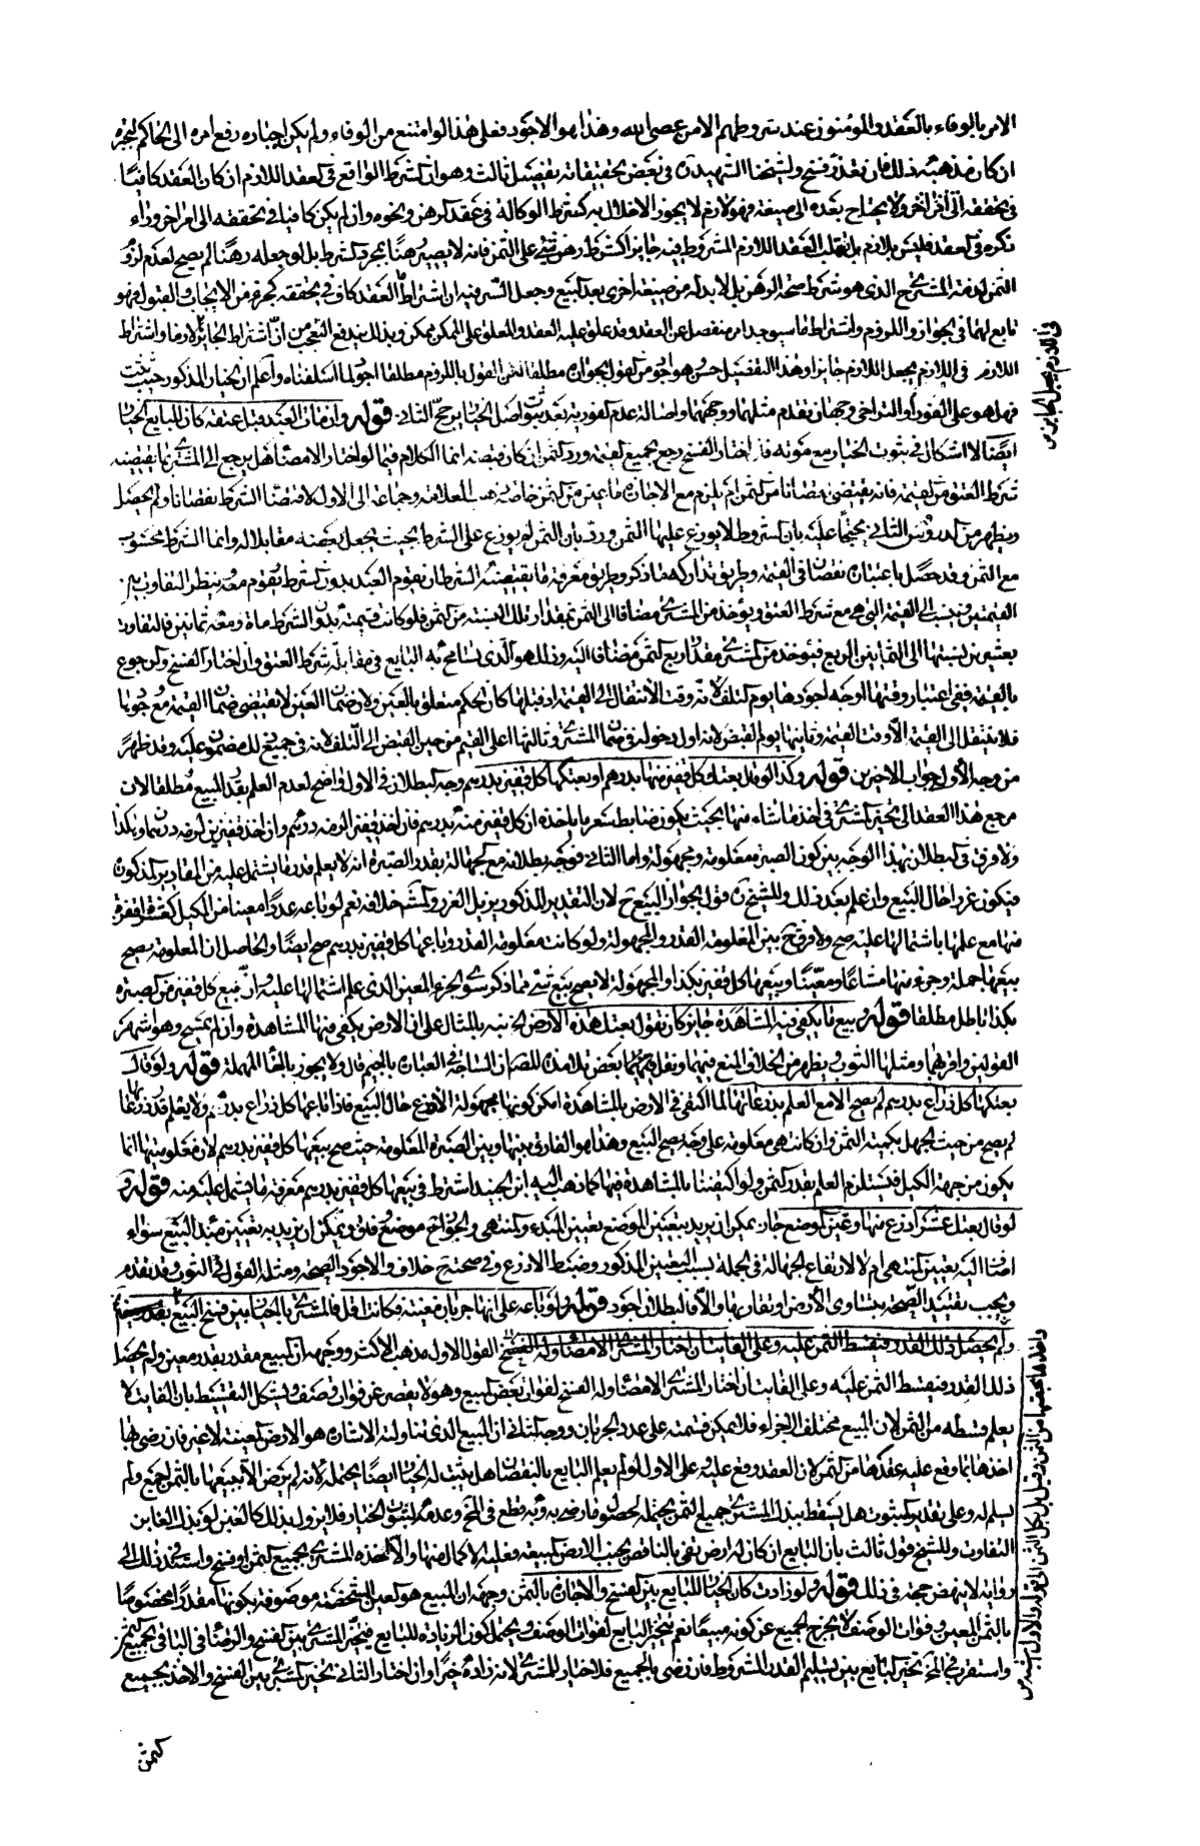 الامر بالوفاء بالعقد والمؤمنون عند شروطهم الا من عصى الله وهذا هو الاجود فعلى هذا لو امتنع من الوفاء ولم يكن اجباره رفع امره الى الحاكم ليجبره
ان كان مذهبه ذلك فان تعذر فسخ ولشيخنا الشهيد ره في بعض تحقيقاته تفصيل ثالث وهو ان الشرط الواقع في العقد اللازم ان كان العقد كافيا
في تحققه ولا يحتاج بعده الى صيغة فهو لازم لا يجوز الاخلال به كشرط الوكالة في عقد الرهن ونحوه وان لم يكن كافيا في تحققه الى امر اخر وراء
ذكره في العقد فليس بلازم بل يقلب العقد اللازم المشروط فيه جايزا كشرط رهن شيء على الثمن فانه لا يصير رهنا بمجرد الشرط بل لو جعله رهنا لم يصح لعدم لزوم
الثمن لذمة المشتري الذي هو شرط صحة الرهن بل لا بد له من صيغة اخرى بعد البيع وجعل السر فيه ان اشتراط ما العقد كاف في تحققه كجزء من الايجاب والقبول فهو
تابع لهما في الجواز واللزوم واشتراط ما سيوجد امر منفصل عن العقد وقد علق عليه العقد والمعلق على الممكن ممكن وبذلك يندفع التعجب من ان اشتراط الجايز لازما واشتراط
اللازم في اللازم يجعل اللازم جايزا وهذا التفصيل حسن هو اجود من القول بالجواز مطلقا لكن القول باللزوم مطلقا اجود لما اسلفناه واعلم ان الخيار المذكور حيث يثبت
فهل هو على الفور او التراخي وجهان تقدم مثلهما ووجههما واصالة عدم الفورية بعد ثبوت اصل الخيار يرجح الثاني قوله وان مات العبد قبل عتقه كان للبايع الخيار
ايضا لا اشكال في ثبوت الخيار مع موته فان اختار الفسخ رجع بجميع القيمة ورد الثمن ان كان قبضه انما الكلام فيما لو اختار الامضاء هل يرجع الى المشتري بما يقتضيه
شرط العتق من القيمة فانه يقتضي نقصانا من الثمن ام يلزم مع الاجازة ما عين من الثمن خاصة ذهب العلامة وجماعة الى الاول لاقتضاء الشرط نقصانا ولم يحصل
ويظهر من الدروس الثاني محتجا عليه بان الشروط لا يوزع عليها الثمن ورد بان الثمن لم يوزع على الشرط بحيث يجعل بعضه مقابلا له وانما الشرط محسوب
مع الثمن وقد حصل باعتباره نقصان في القيمة وطريق تداركه ما ذكر وطريق معرفة ما يقتضيه الشرط ان يقوم العبد بدون الشرط ويقوم معه وينظر التفاوت بين
القيمتين وينسب الى القيمة التي هي مع شرط العتق ويؤخذ من المشتري مضافا الى الثمن بمقدار تلك النسبة من الثمن فلو كانت قيمته بدون الشرط مائة ومعه ثمانين فالتفاوت
بعشرين نسبتها الى الثمانين الربع فيؤخذ من المشتري مقدار ربع الثمن مضافا اليه وذلك هو الذي يسامح به البايع في مقابلة شرط العتق وان اختار الفسخ والرجوع
بالقيمة ففي اعتبار وقتها اوجه اجودها يوم التلف لانه وقت الانتقال الى القيمة اذ قبلها كان الحكم متعلقا بالعين ولان ضمان العين لا يقتضي ضمان القيمة مع وجودها
فلا ينتقل الى القيمة الا وقت القيمة وثانيها يوم القبض لانه اول دخوله في ضمان المشتري وثالثها اعلى القيم من حين القبض الى التلف لانه في جميع ذلك مضمون عليه وقد ظهر
من وجه الاول جواب الاخيرين قوله وكذا لو قال بعتك كل قفيز منها بدرهم او بعتكها كل قفيز بدرهم وجه البطلان في الاول واضح لعدم العلم بقدر المبيع مطلقا لان
مرجع هذا العقد الى تخيير المشتري في اخذ ما شاء منها بحيث يكون ضابط سعر ما ياخذه ان كل قفيز منه بدرهم فان اخذ قفيزا لزمه درهم وان اخذ قفيزين لزمه درهمان وهكذا
ولا فرق في البطلان بهذا الوجه بين كون الصبرة معلومة ومجهولة واما الثاني فوجه بطلانه مع الجهالة بقدر الصبرة انه لا يعلم قدر ما يشتمل عليه من المقادير المذكورة
فيكون غررا حال البيع وان علم بعد ذلك وللشيخ ره قول بجواز البيع ح لان التقدير المذكور يزيل الغرر والمشهور خلافه نعم لو باعه عددا معينا من الكيل كعشرة اقفزة
منها مع علمها باشتمالها عليه صح ولا فرق ح بين المعلومة القدر والمجهولة ولو كانت معلومة القدر وباعها كل قفيز بدرهم صح ايضا والحاصل ان المعلومة يصح
بيعها جملة وجزء منها مشاعا ومعينا وبيعها كل قفيز بكذا والمجهولة لا يصح بيع شيء مما ذكر سوى الجزء المعين الذي علم اشتمالها عليه وان بيع كل قفيز من الصبرة
بكذا باطل مطلقا قوله وبيع ما يكفي فيه المشاهدة جايز كان يقول بعتك هذه الارض الخ نبه بالمثال على ان الارض يكفي فيها المشاهدة وان لم تمسح وهو اشهر
القولين واقربهما ومثلها الثوب ويظهر من الخلاف المنع فيهما ونقل بعض تلامذة المصنف ان الساجة في العبارة بالجيم قال ولا يجوز بالحاء المهملة قوله ولو قال
بعتكها كل ذراع بدرهم لم يصح الا مع العلم بذرعانها لما اكتفى في الارض بالمشاهدة امكن كونها مجهولة الاذرع حال البيع فاذا باعها كل ذراع بدرهم ولا يعلم قدر ذرعانها
لم يصح من حيث الجهل بكمية الثمن وان كانت هي معلومة على وجه يصح البيع وهذا هو الفارق بينها وبين الصبرة المعلومة حيث صح بيعها كل قفيز بدرهم لان معلوميتها انما
يكون من جهة الكيل فيستلزم العلم بقدر الثمن ولو اكتفينا بالمشاهدة فيها كما ذهب اليه ابن الجنيد اشترط في بيعها كل قفيز بدرهم معرفة ما يشتمل عليه منه قوله و
لو قال بعتك عشر اذرع منها وعين الموضع جاز يمكن ان يريد بتعيين الموضع تعيين المبدء والمنتهى والجواز ح موضع وفاق ويمكن ان يريد به تعيين مبدا البيع سواء
اضاف اليه تعيين المنتهى ام لا لارتفاع الجهالة في الجملة بسبب التعيين المذكور وضبط الاذرع وفي صحته ح خلاف والاجود الصحة ومثله القول في الثوب وقد تقدم
ويجب تقييد الصحة بتساوي الارض او تقاربها والا فالبطلان اجود قوله ولو باعه على انها جربان معينة فكانت اقل فالمشتري بالخيار بين فسخ البيع
ولم يحصل ذلك القدر فيقسط الثمن عليه وعلى الفايت ان اختار المشتري الامضاء وله الفسخ القول الاول مذهب الاكثر ووجهه ان المبيع مقدر بقدر معين ولم يحصل
ذلك القدر فيقسط الثمن عليه وعلى الفايت ان اختار المشتري الامضاء وله الفسخ لفوات بعض المبيع وهو لا يقصر عن فوات وصف ويشكل التقسيط بان الفايت لا
يعلم قسطه من الثمن لان المبيع مختلف الاجزاء فلا يمكن قسمته على عدد الجربان ووجه الثاني ان المبيع الذي تناولته الاشارة هو الارض المعينة لا غير فان رضي بها
اخذها بما وقع عليه عقدها من الثمن لان العقد وقع عليه وعلى الاول لو لم يعلم البايع بالنقصان هل يثبت له الخيار ايضا يحتمله لانه لم يرض الا ببيعها بالثمن اجمع ولم
يسلم له وعلى تقدير الثبوت هل يسقط ببذل المشتري جميع الثمن يحتمله لحصول ما رضي به وبه قطع في التحرير وعدمه لثبوت الخيار فلا يزول بذلك كالغبن لو بذل الغابن
التفاوت وللشيخ قول ثالث بان البايع ان كان له ارض تفي بالناقص بجنب الارض المبيعة فعليه الاكمال منها والا اخذه المشتري بجميع الثمن او فسخ واستند في ذلك الى
رواية لا ينهض حجة في ذلك قوله ولو زادت كان الخيار للبايع بين الفسخ والاجازة بالثمن وجهه ان المبيع هو العين الشخصية موصوفة بكونها مقدارا مخصوصا
بالثمن المعين وفوات الوصف لا يخرج الجميع عن كونه مبيعا نعم يتخير البايع لفوات الوصف ويحتمل كون الزيادة للبايع فيتخير المشتري بين الفسخ والرضا في الباقي بجميع الثمن
واستقرب في التحرير تخير البايع بين تسليم القدر المشروط فان رضي بالجميع فلا خيار للمشتري لانه زاده خيرا وان اختار الثاني تخير المشتري بين الفسخ والاخذ بجميع
الثمن
في اللازم يجعل الجايز ص
واخذها بحصتها من الثمن وقيل بل بكل الثمن